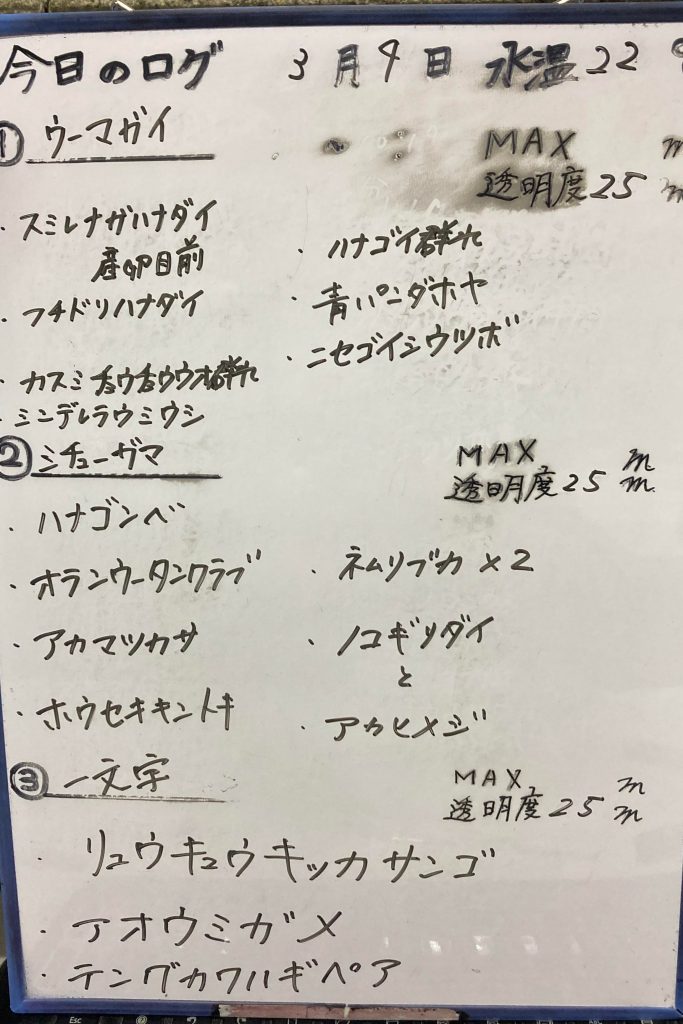 今日のログ 3月9日 水温22℃
① ウーマガイ
MAX m
透明度25m
・スミレナガハナダイ
産卵目前
・フチドリハナダイ
・カスミチョウチョウウオ群れ
・シンデレラウミウシ
・ハナゴイ群れ
・青いパンダホヤ
・ニセゴイシウツボ
② ミチューザマ
MAX m
透明度25m.
・ハナゴンベ
・オランウータンクラブ
・アカマツカサ
・ホウセキキントキ
・ネムリブカ×2
・ノコギリダイ
と
アカヒメジ
③ 一文字
MAX m
透明度25m
・リュウキュウキッカサンゴ
・アオウミガメ
・テングカワハギペア
Esc